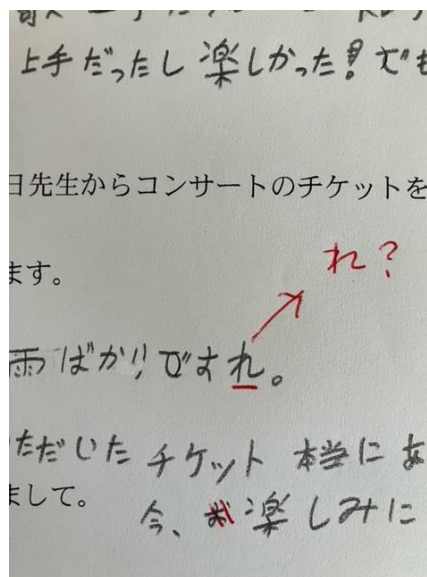 上手だったし楽しかった!でも
日先生からコンサートのチケットを
れ?
ます。
雨ばかりですれ。
ただいたチケット 本当にあ
まして。
今、楽しみに